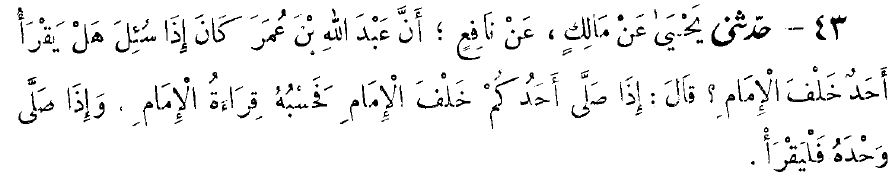 ٤٣ – حَدّثَنى يَحْيَىٰ عَنْ مَالِكٍ ، عَنْ نَافِعٍ ؛ أَنَّ عَبْدَ اللهِ بْنَ عُمَرَ كَانَ إِذَا سُئِلَ هَلْ يَقْرَأُ
أَحَدٌ خَلْفَ الْإِمَامِ ؟ قَالَ : إِذَا صَلَّى أَحَدُ كُمْ خَلْفَ الْإِمَامِ فَحَسْبُهُ قِرَاءَةُ الْإِمَامِ . وَإِذَا صَلَّى
وَحْدَهُ فَلْيَقْرَأْ .